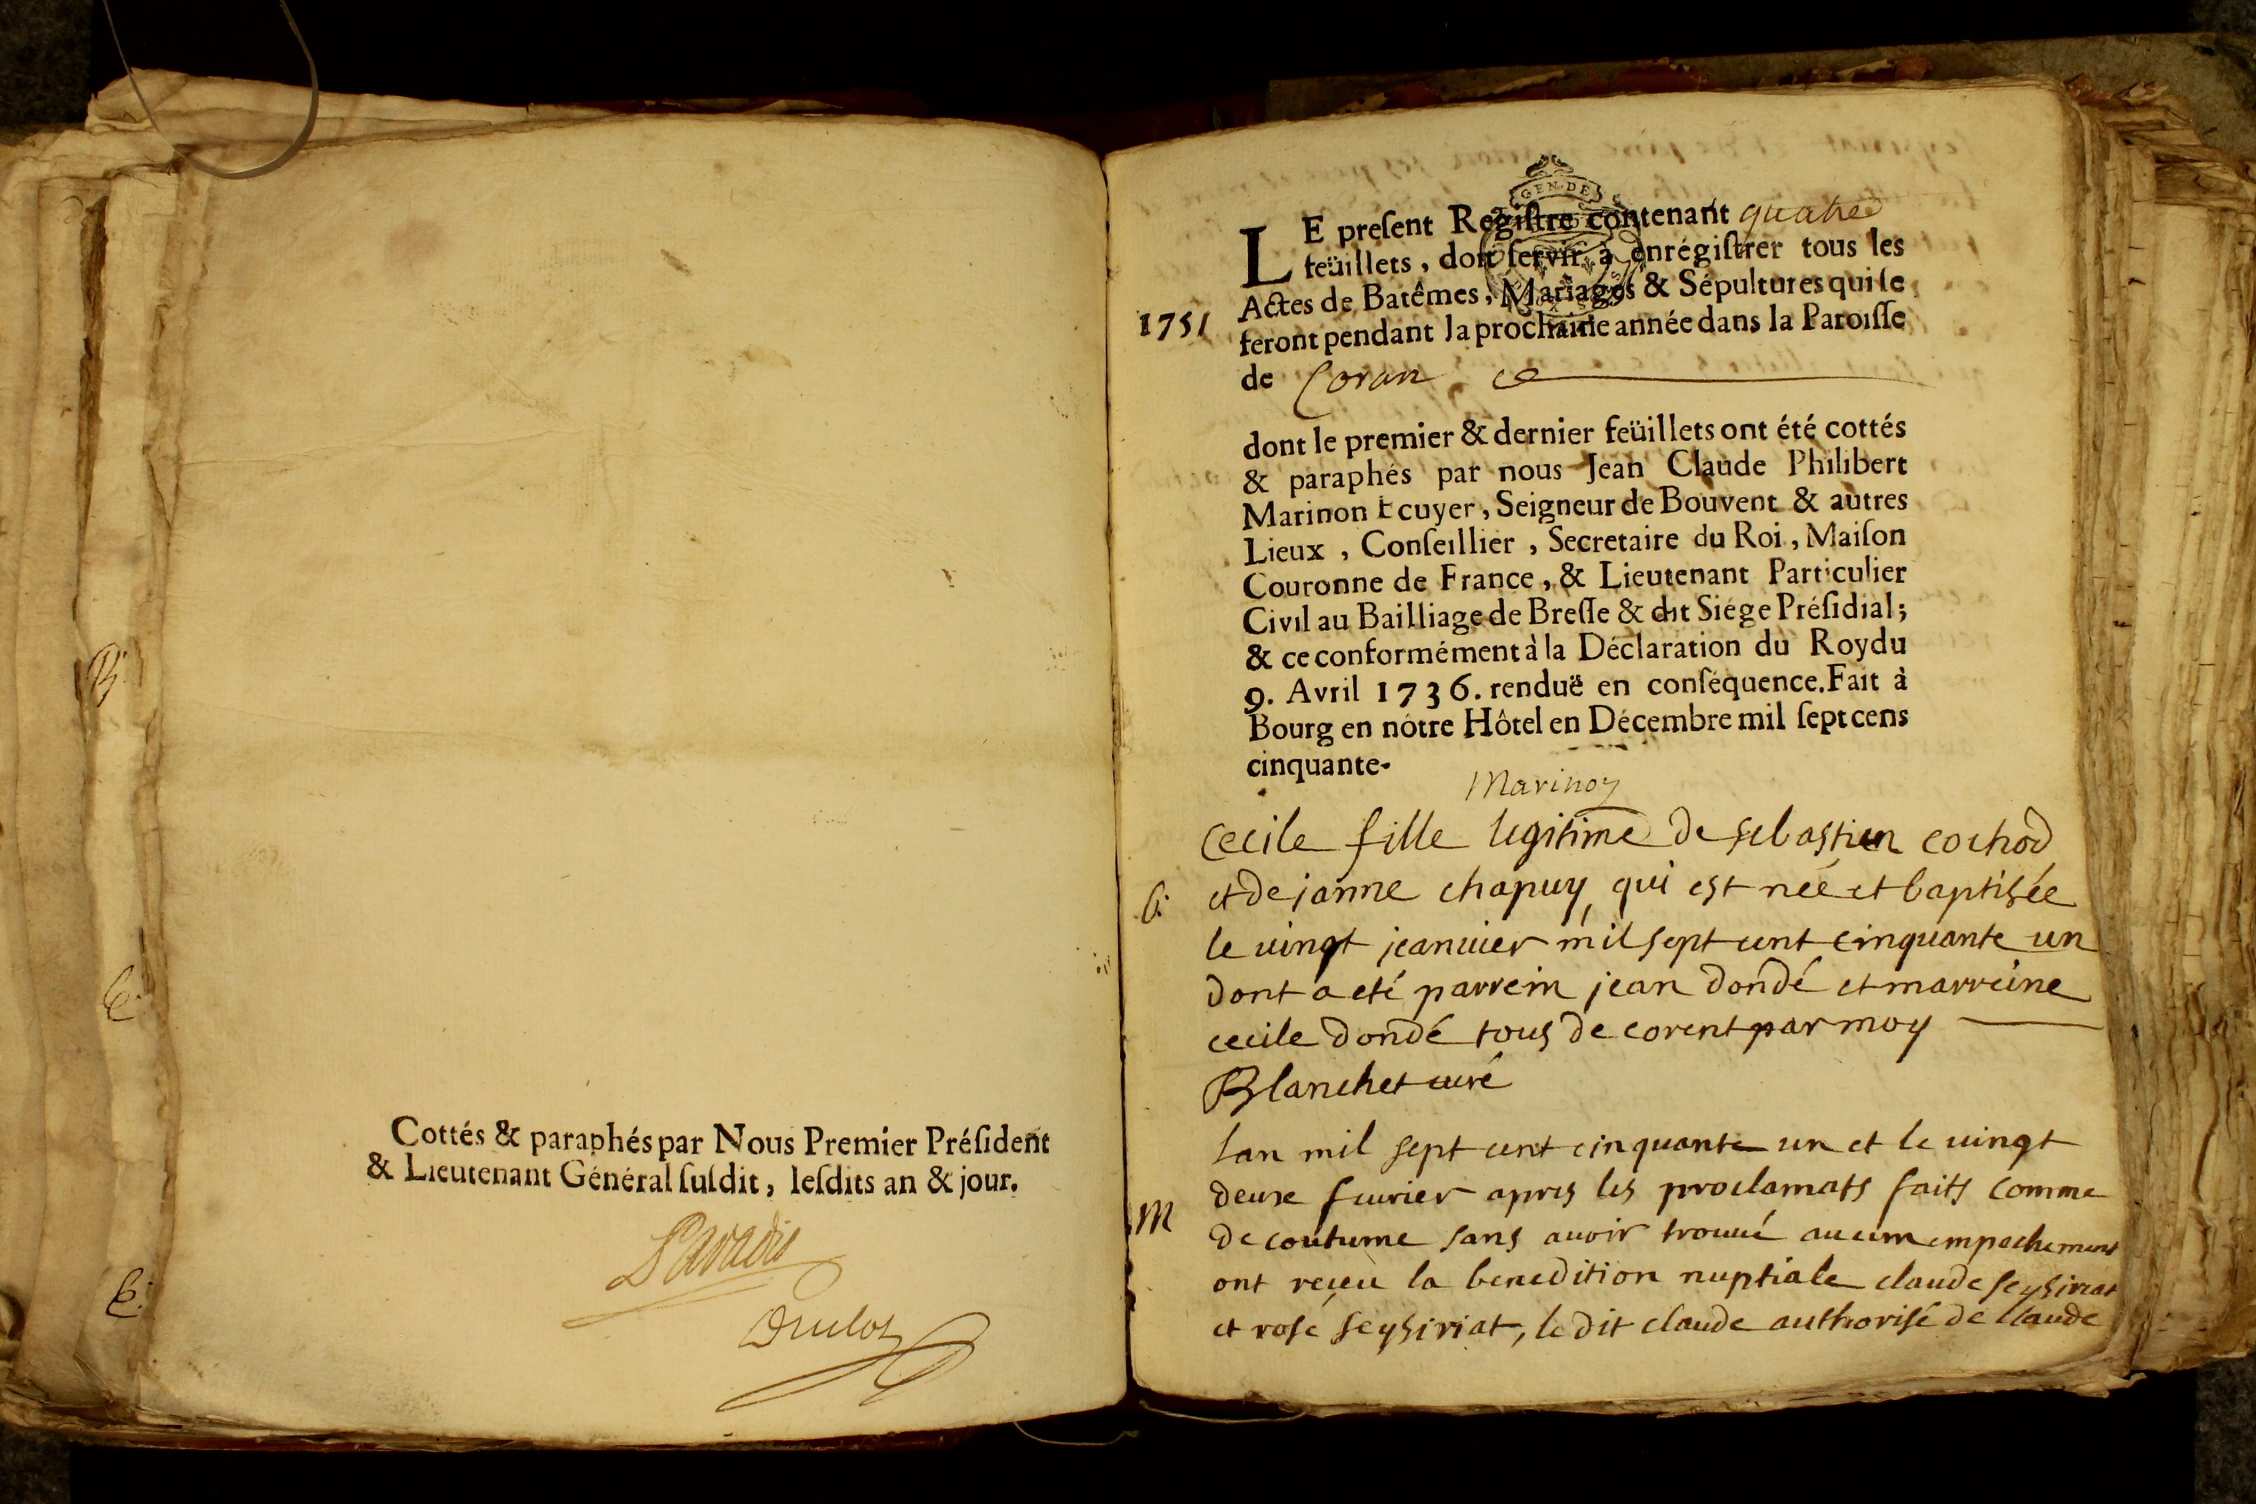 B.
B.
B.
Cottés & paraphés par Nous Premier Préſident
& Lieutenant Général ſuſdit, leſdits an & jour.
GEN. DE
LE preſent Regiſtre contenant quatre
feüillets, doit ſervir à enrégiſtrer tous les
Actes de Batêmes, Mariages & Sépultures qui ſe
1751
feront pendant la prochaine année dans la Paroiſſe
de Coran ce
dont le premier & dernier feüillets ont été cottés
& paraphés par nous Jean Claude Philibert
Marinon Ecuyer, Seigneur de Bouvent & autres
Lieux, Conſeillier, Secretaire du Roi, Maiſon
Couronne de France, & Lieutenant Particulier
Civil au Bailliage de Breſſe & dit Siége Préſidial;
& ce conformément à la Déclaration du Roy du
9. Avril 1736. renduë en conſéquence. Fait à
Bourg en nótre Hôtel en Décembre mil ſept cens
cinquante.
Marinon
cecile fille legitime de sebastien cochod
b. et de janne chapuy qui est née et baptisée
le vingt jeanuier mil sept cent cinquante un
dont a eté parrein jean dondé et marreine
cecile dondé tous de corent par moy
Blanchet curé
lan mil sept cent cinquante un et le uingt
deuxe feurier apres les proclamats faits comme
M de coutume sans auoir trouué aucun empechement
ont receu la benedition nuptiale claude seysiriat
et rose seysiriat, le dit claude authorisé de claude